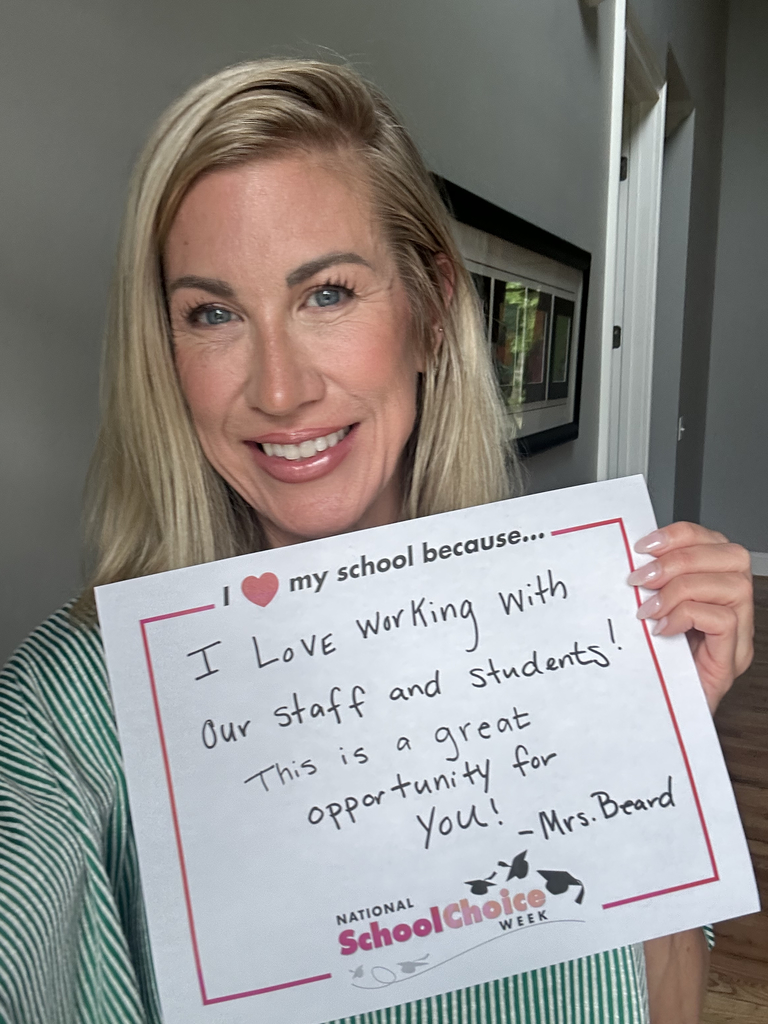 I ❤ my school because...
I LOVE working with
our staff and students!
This is a great
opportunity for
you!
-Mrs. Beard
NATIONAL
SchoolChoice
WEEK